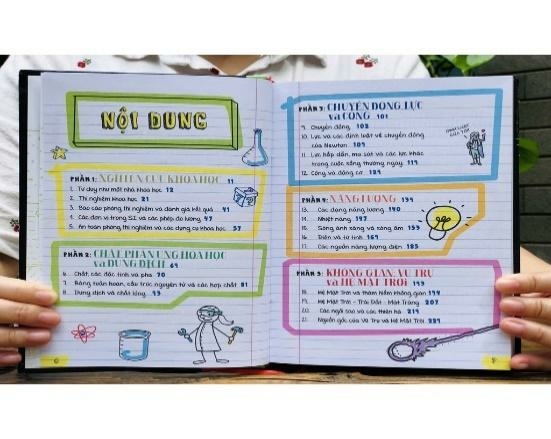 NỘI DUNG
PHẦN 1: NGHIÊN CỨU KHOA HỌC 11
1. Tư duy như một nhà khoa học 12
2. Thí nghiệm khoa học 21
3. Báo cáo phòng thí nghiệm và đánh giá kết quả 41
4. Các đơn vị trong SI và các phép đo lường 47
5. An toàn phòng thí nghiệm và các dụng cụ khoa học 57
PHẦN 2: CHẤT, PHẢN ỨNG HÓA HỌC
và DUNG DỊCH 69
6. Chất, các đặc tính và pha 70
7. Bảng tuần hoàn, cấu trúc nguyên tử và các hợp chất 81
8. Dung dịch và chất lỏng 93
PHẦN 3: CHUYỂN ĐỘNG, LỰC
và CÔNG 101
9. Chuyển động 102
10. Lực và các định luật về chuyển động
của Newton 109
11. Lực hấp dẫn, ma sát và các lực khác
trong cuộc sống thường ngày 119
12. Công và động cơ 129
PHẦN 4: NĂNG LƯỢNG 139
13. Các dạng năng lượng 140
14. Nhiệt năng 147
15. Sóng ánh sáng và sóng âm 155
16. Điện và từ tính 169
17. Các nguồn năng lượng điện 185
PHẦN 5: KHÔNG GIAN, VŨ TRỤ
và HỆ MẶT TRỜI 193
18. Hệ Mặt Trời và thám hiểm không gian 194
19. Hệ Mặt Trời - Trái Đất - Mặt Trăng 207
20. Các ngôi sao và các thiên hà 219
21. Nguồn gốc của Vũ Trụ và Hệ Mặt Trời 229